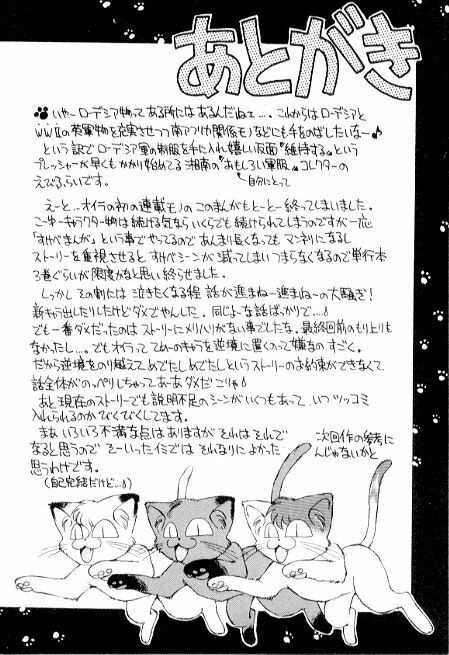 あとがき
いやーローデシア物ってある所にはあるんだねェ…。これからはローデシアと
WWⅡの英軍物を充実させつつ南アフリカ関係モノなどにも手をのばしたいなー♪
という訳でローデシア軍の制服を手に入れ嬉しい反面〝維持する〟という
プレッシャーが早くもかかり始めてる湘南の〝おもしろい軍服〟コレクターの
えびふらいです。
自分にとって
えーと…オイラの初の連載モノのこのまんがもとーとー終ってしまいました。
こーゆーキャラクター物は続ける気ならいくらでも続けられてしまうのですが一応
「すけべまんが」という事でやってるのであんまり長くなってもマンネリになるし
ストーリーを重視させるとすけべシーンが減ってしまいつまらなくなるので単行本
3巻ぐらいが限度かなと思い終らせました。
しっかしその割には泣きたくなる程話が進まねー進まねーの大騒ぎ!
新キャラ出したりしたけどダメでやんした。同じよーな話ばっかりで…♪
でも一番ダメだったのはストーリーにメリハリがない事でしたな。最終回前のもり上りも
なかったし…。でもオイラっててめーのキャラを逆境に置くのって嫌なのすごく。
だから逆境をのり越えてめでたしめでたしというストーリーのお約束ができなくて
話全体がのっぺりしちゃってあーあダメだこりゃ♪
あと現在のストーリーでも説明不足のシーンがいくつもあって、いつツッコミ
入れられるのかびくびくしてます。
まぁいろいろ不満な点はありますがそれはそれで 次回作の参考に
なると思うのでそーいったイミではそれなりによかった んじゃないかと
思うわけです。
(自己完結だけど…♪)